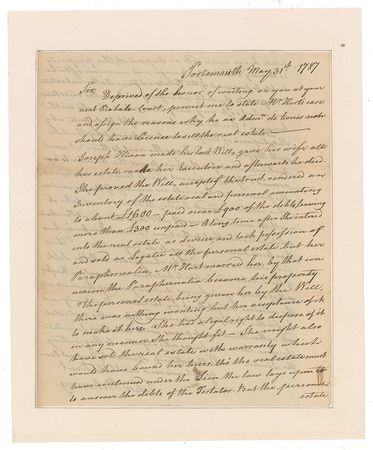 Portsmouth May 31st 1787
Sir Deprived of the honor of waiting on you at your
next Probate Court, permit me to state Mr Harts case
and assign the reasons why he as Admr. de bonis non
should have License to sell the real estate.
Joseph Hixon made his last Will, gave his wife all
his estate, made her Executrix and afterwards he died.
She proved the Will, accepted the trust, rendered an
Inventory of the estate real and personal amounting
to about £1600 - paid near £900 of the debts leaving
more than £300 unpaid - A long time after She entered
into the real estate as devisee and took possession of
and sold as Legatee all the personal estate but her
Paraphernalia, Mr. Hart married her, by that con
nexion the Paraphernalia became his property
The personal estate being given her by the Will,
there was nothing wanting but her acceptance of it
to make it hers. She had a legal right to dispose of it
in any manner She thought fit - She might also
have sold the real estate with warranty which
would have bound her heirs, tho' the real estate must
have continued under the Lien the law lays upon it
to answer the debts of the Testator. But the personal
estate